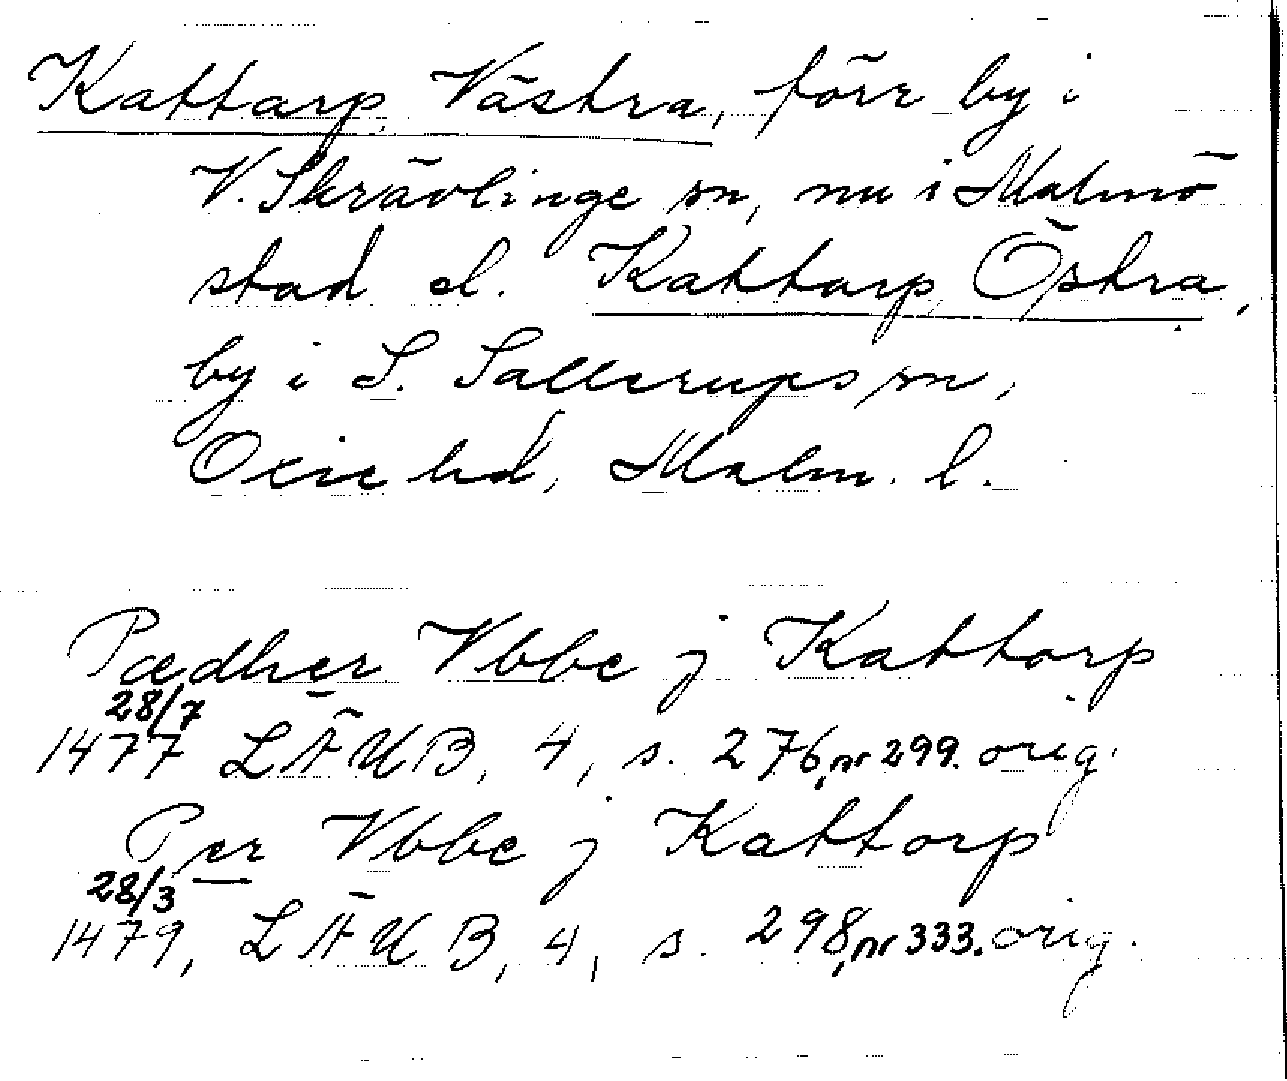 Kattarp, Västra, förr by i
V. Skrävlinge sn, nu i Malmö
stad el. Kattarp, Östra,
by i S. Sallerups sn,
Oxie hd, Malm. l.
Pædher Vbbe j Kattorp
28/7
1477 LÄUB, 4, s. 276, nr 299. orig.
Per Vbbe j Kattorp
28/3
1479, LÄUB, 4, s. 298, nr 333. orig.